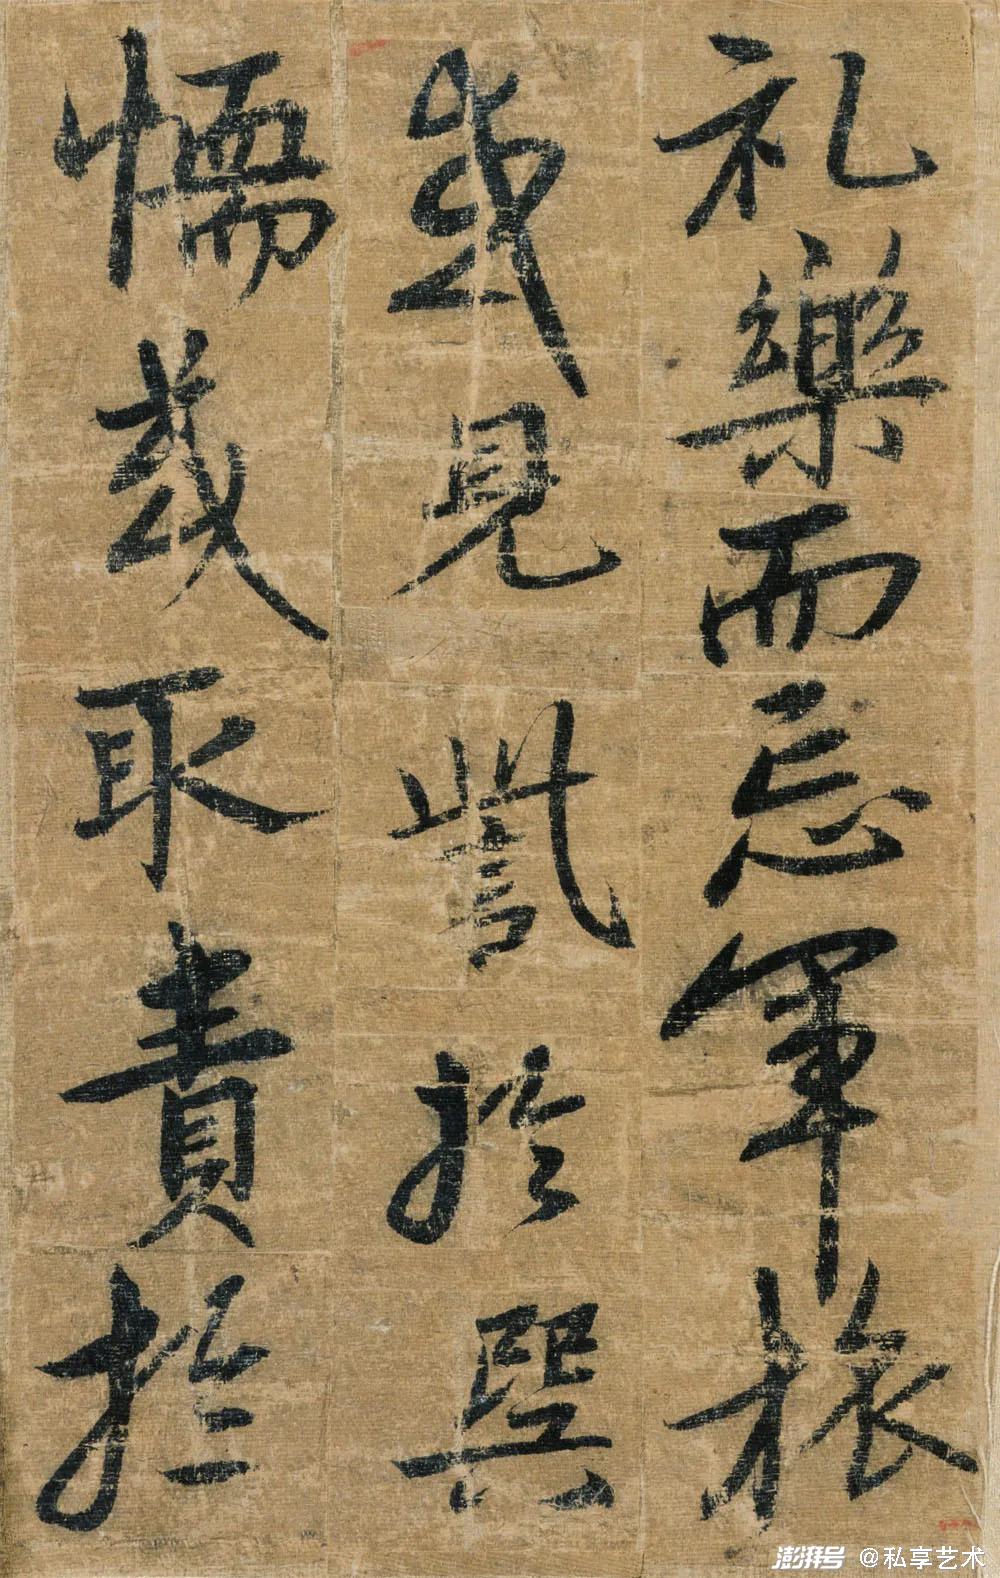 礼樂而忘軍旅
或見訾於巽
懦或取責於
澎湃号 @私享艺术